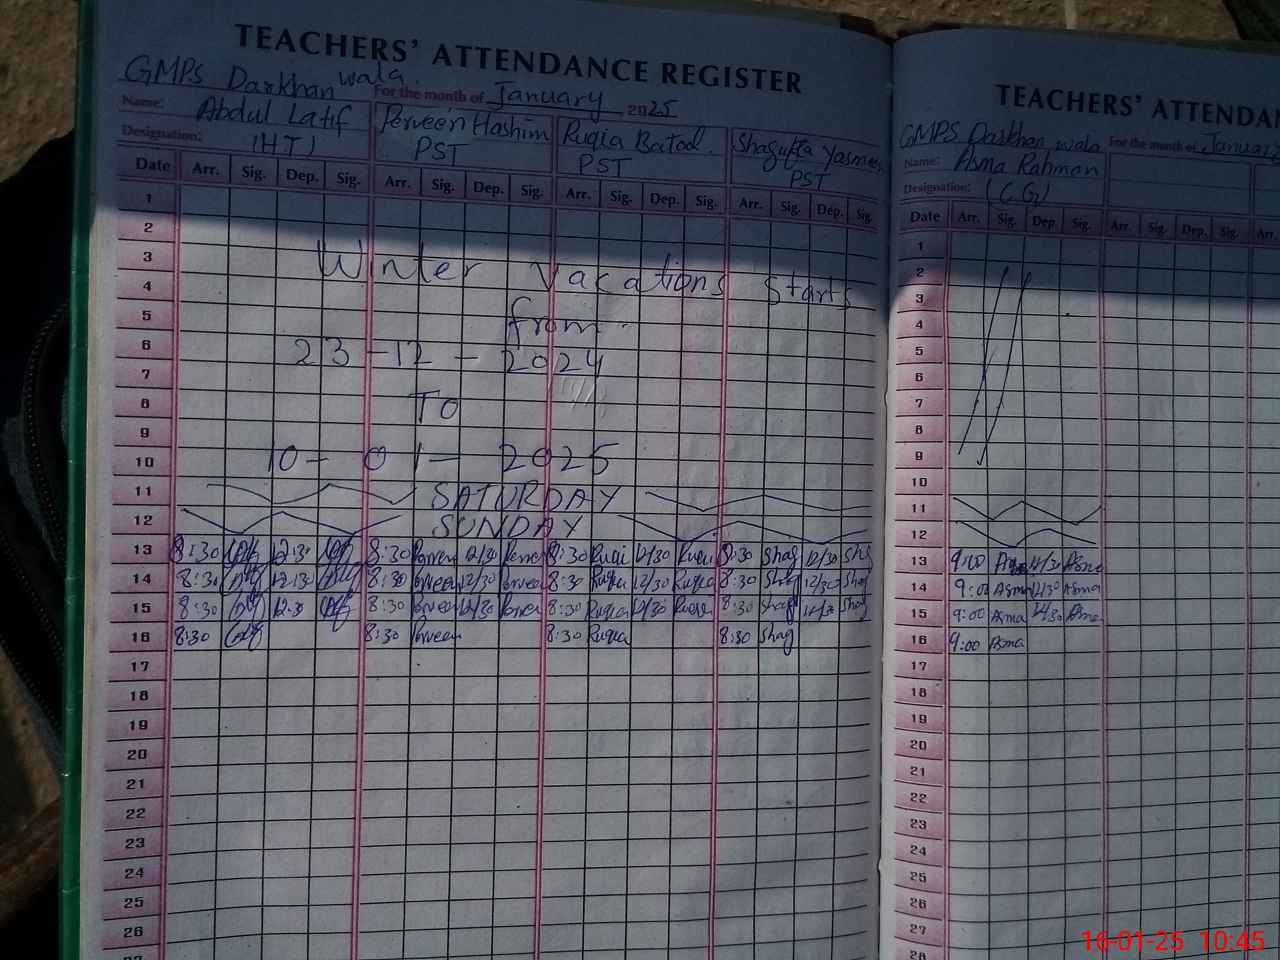 TEACHERS' ATTENDANCE REGISTER
GMPS Darkhan wala. For the month of January 2025
Name: Abdul Latif Perveen Hashim Ruqia Batool Shagufta Yasmeen
Designation: (H.T) PST PST PST
Date Arr. Sig. Dep. Sig. Arr. Sig. Dep. Sig. Arr. Sig. Dep. Sig. Arr. Sig. Dep. Sig.
1
2
3 Winter Vacations Starts
4
5 from
6 23-12-2024
7
8 To
9
10 10-01-2025
11 SATURDAY
12 SUNDAY
13 8:30 12:30 8:30 Perveen 12/30 8:30 Ruqi 12/30 Ruqi 8:30 Shag 12/30 Shg
14 8:30 12:30 8:30 Perveen 12/30 8:30 Ruqia 12/30 Ruqia 8:30 Shag 12/30 Shag
15 8:30 12:30 8:30 Perveen 12/30 8:30 Ruqia 12/30 Ruqia 8:30 Shag 12/30 Shag
16 8:30 8:30 Perveen 8:30 Ruqia 8:30 Shag
17
18
19
20
21
22
23
24
25
26
27
TEACHERS' ATTENDAN
GMPS Darkhan wala For the month of January
Name: Asma Rahman
Designation: (C.G)
Date Arr. Sig. Dep. Sig. Arr. Sig. Dep. Sig. Arr.
1
2
3
4
5
6
7
8
9
10
11
12
13 9:00 Asma 12/30 Asma
14 9:00 Asma 12/30 Asma
15 9:00 Asma 12/30 Asma
16 9:00 Asma
17
18
19
20
21
22
23
24
25
26
27
28
16-01-25 10:45